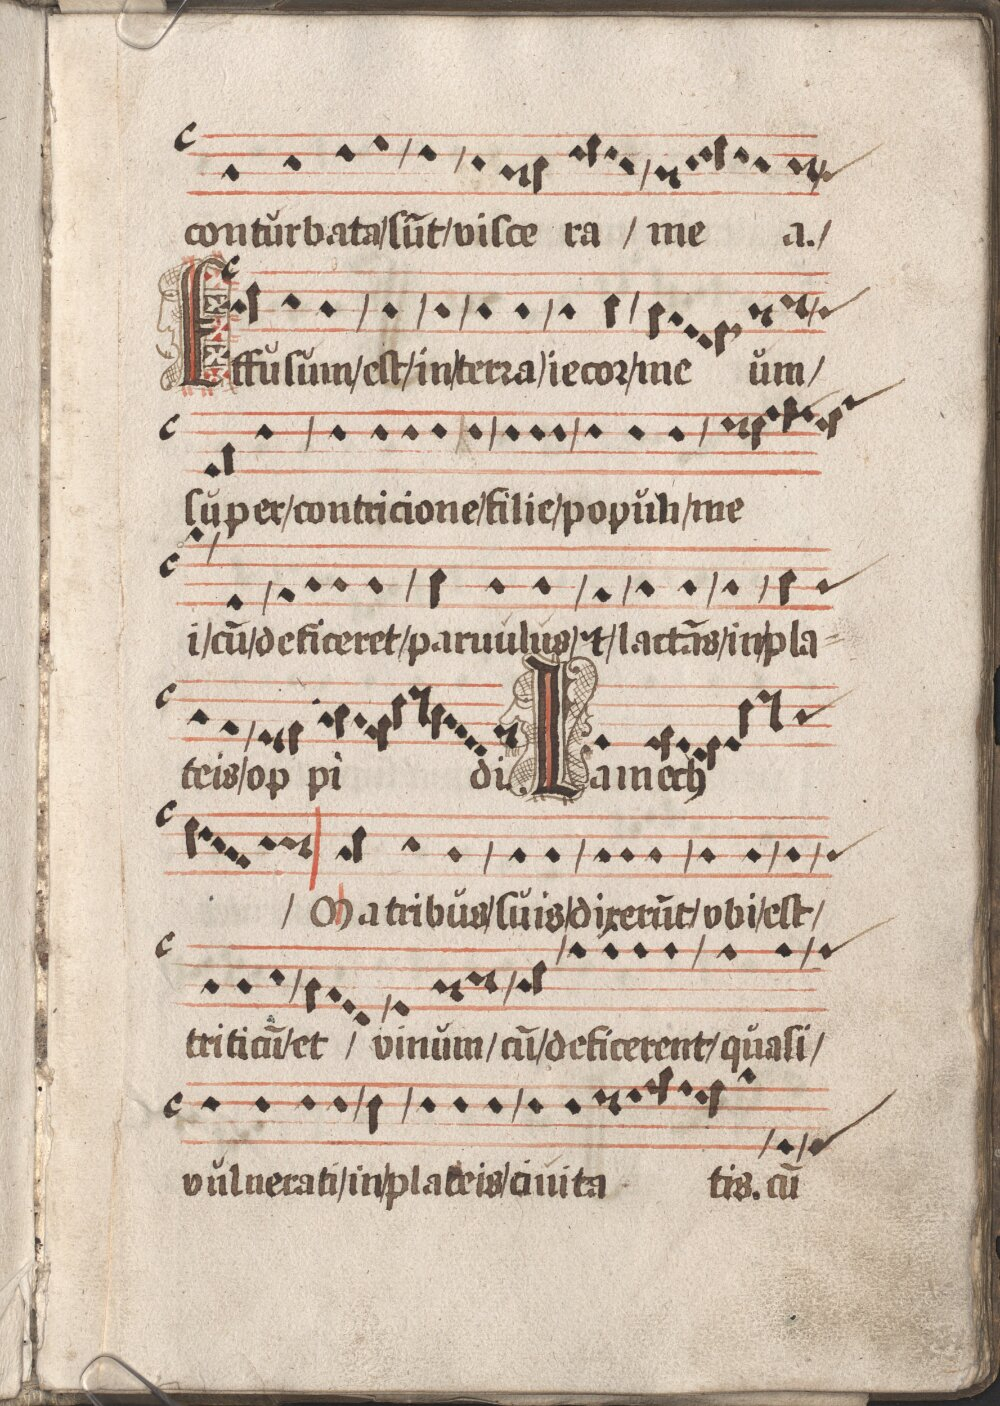 conturbata/sūt/visce ra / me a./
Effusum/est/in/terra/iecor/me um/
super/contricione/filie/populi/me
i/cū/deficeret/paruulus/et/lactās/in/pla=
teis/op pi di. Lamech
/ Matribus/suis/dixerūt/vbi/est/
triticū/et / vinum/cū/deficerent/quasi/
vulnerati/in/plateis/ciuita tis. cū